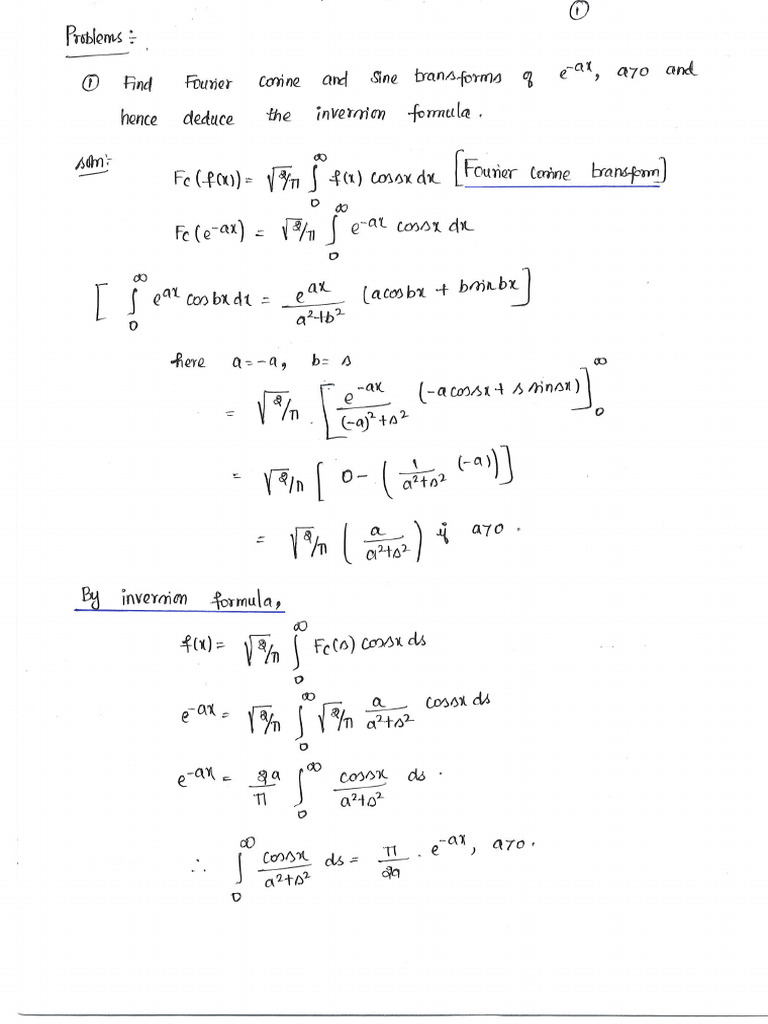 ①
Problems :-
① Find Fourier cosine and sine transforms of e^-ax, a>0 and
hence deduce the inversion formula.
soln:-
Fc(f(x)) = √2/π ∫₀^∞ f(x) cossx dx [Fourier cosine transform]
Fc(e^-ax) = √2/π ∫₀^∞ e^-ax cossx dx
[ ∫₀^∞ e^ax cosbx dx = e^ax/(a²+b²) (acosbx + bsinbx) ]
here a=-a, b=s
= √2/π . [ e^-ax/((-a)²+s²) (-acossx + s sinsx) ]₀^∞
= √2/π [ 0 - ( 1/(a²+s²) (-a) ) ]
= √2/π ( a/(a²+s²) ) if a>0 .
By inversion formula,
f(x) = √2/π ∫₀^∞ Fc(s) cossx ds
e^-ax = √2/π ∫₀^∞ √2/π a/(a²+s²) cossx ds
e^-ax = 2a/π ∫₀^∞ cossx/(a²+s²) ds .
∴ ∫₀^∞ cossx/(a²+s²) ds = π/2a . e^-ax, a>0.